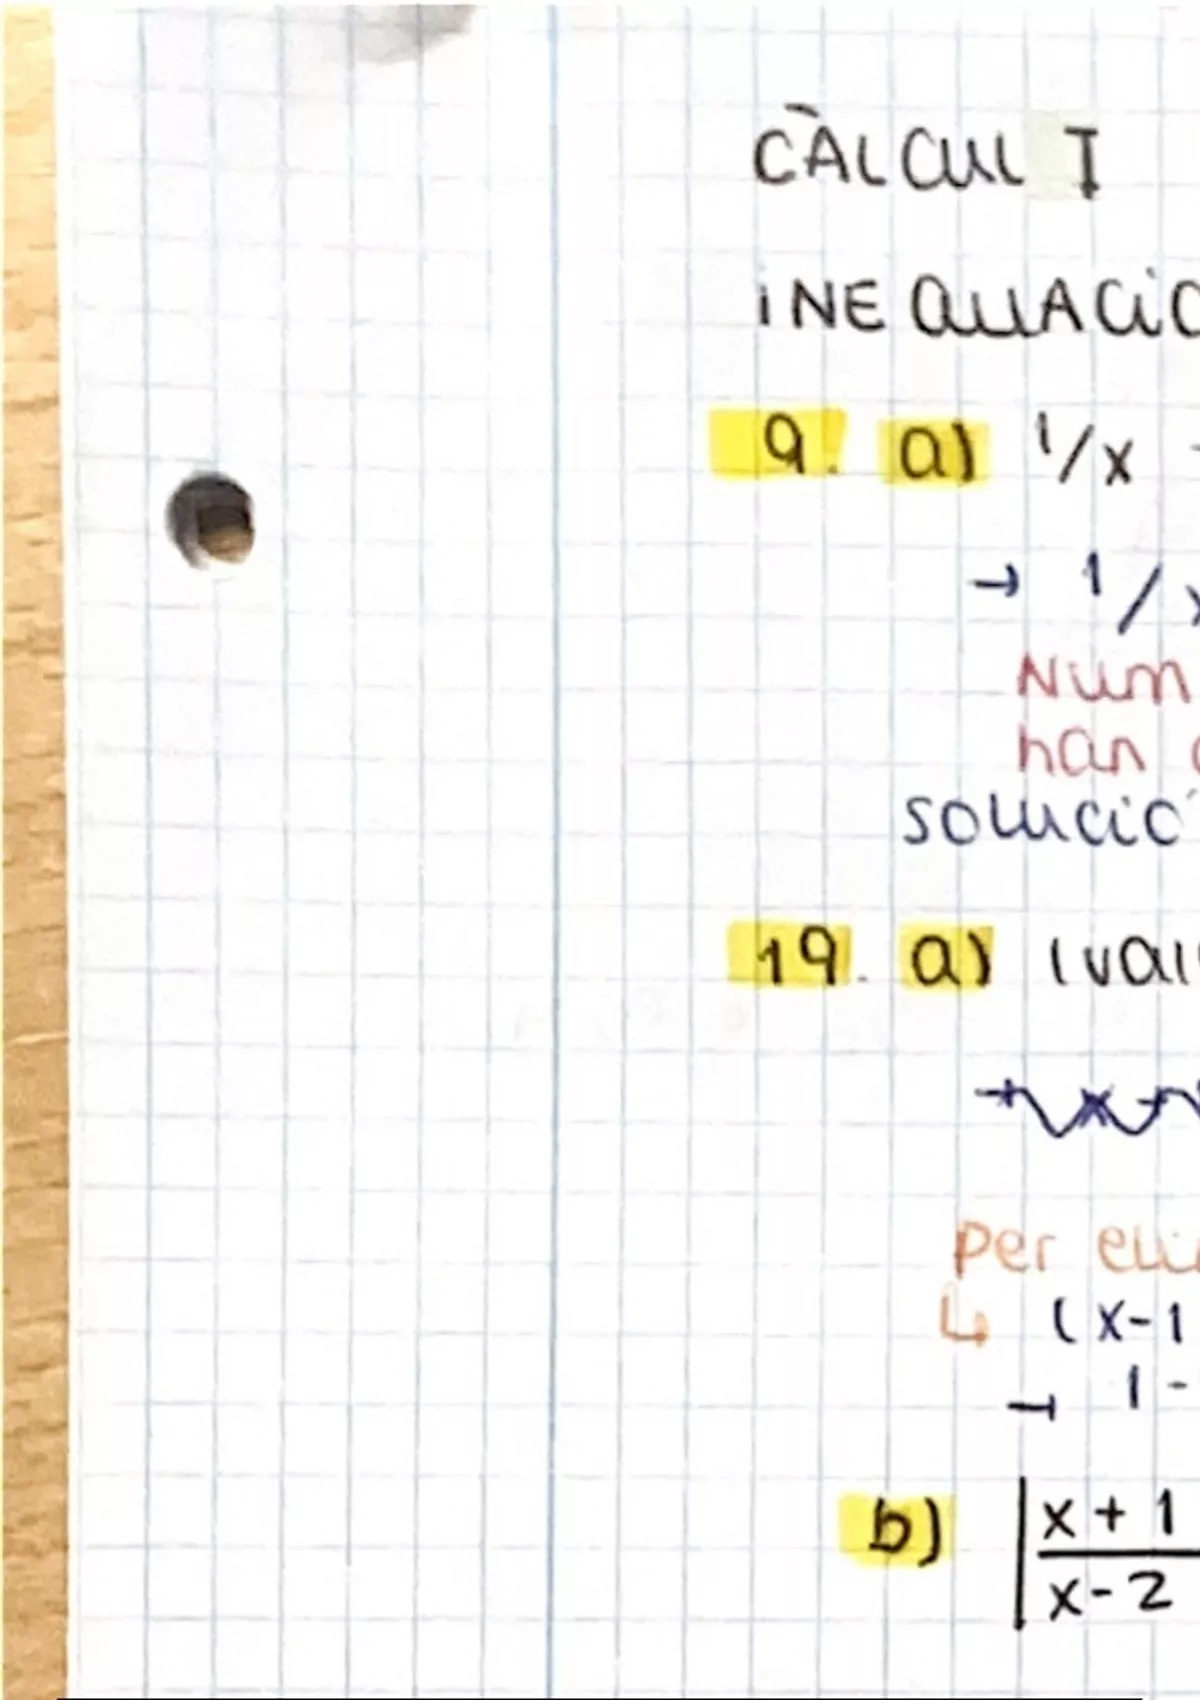 CÀLCUL I
INEQUACIO
9. a) 1/x
→ 1/x
Num
han
solució
19. a) 
Per
↳ (x-1
→ 1 -
b) |x + 1
x - 2